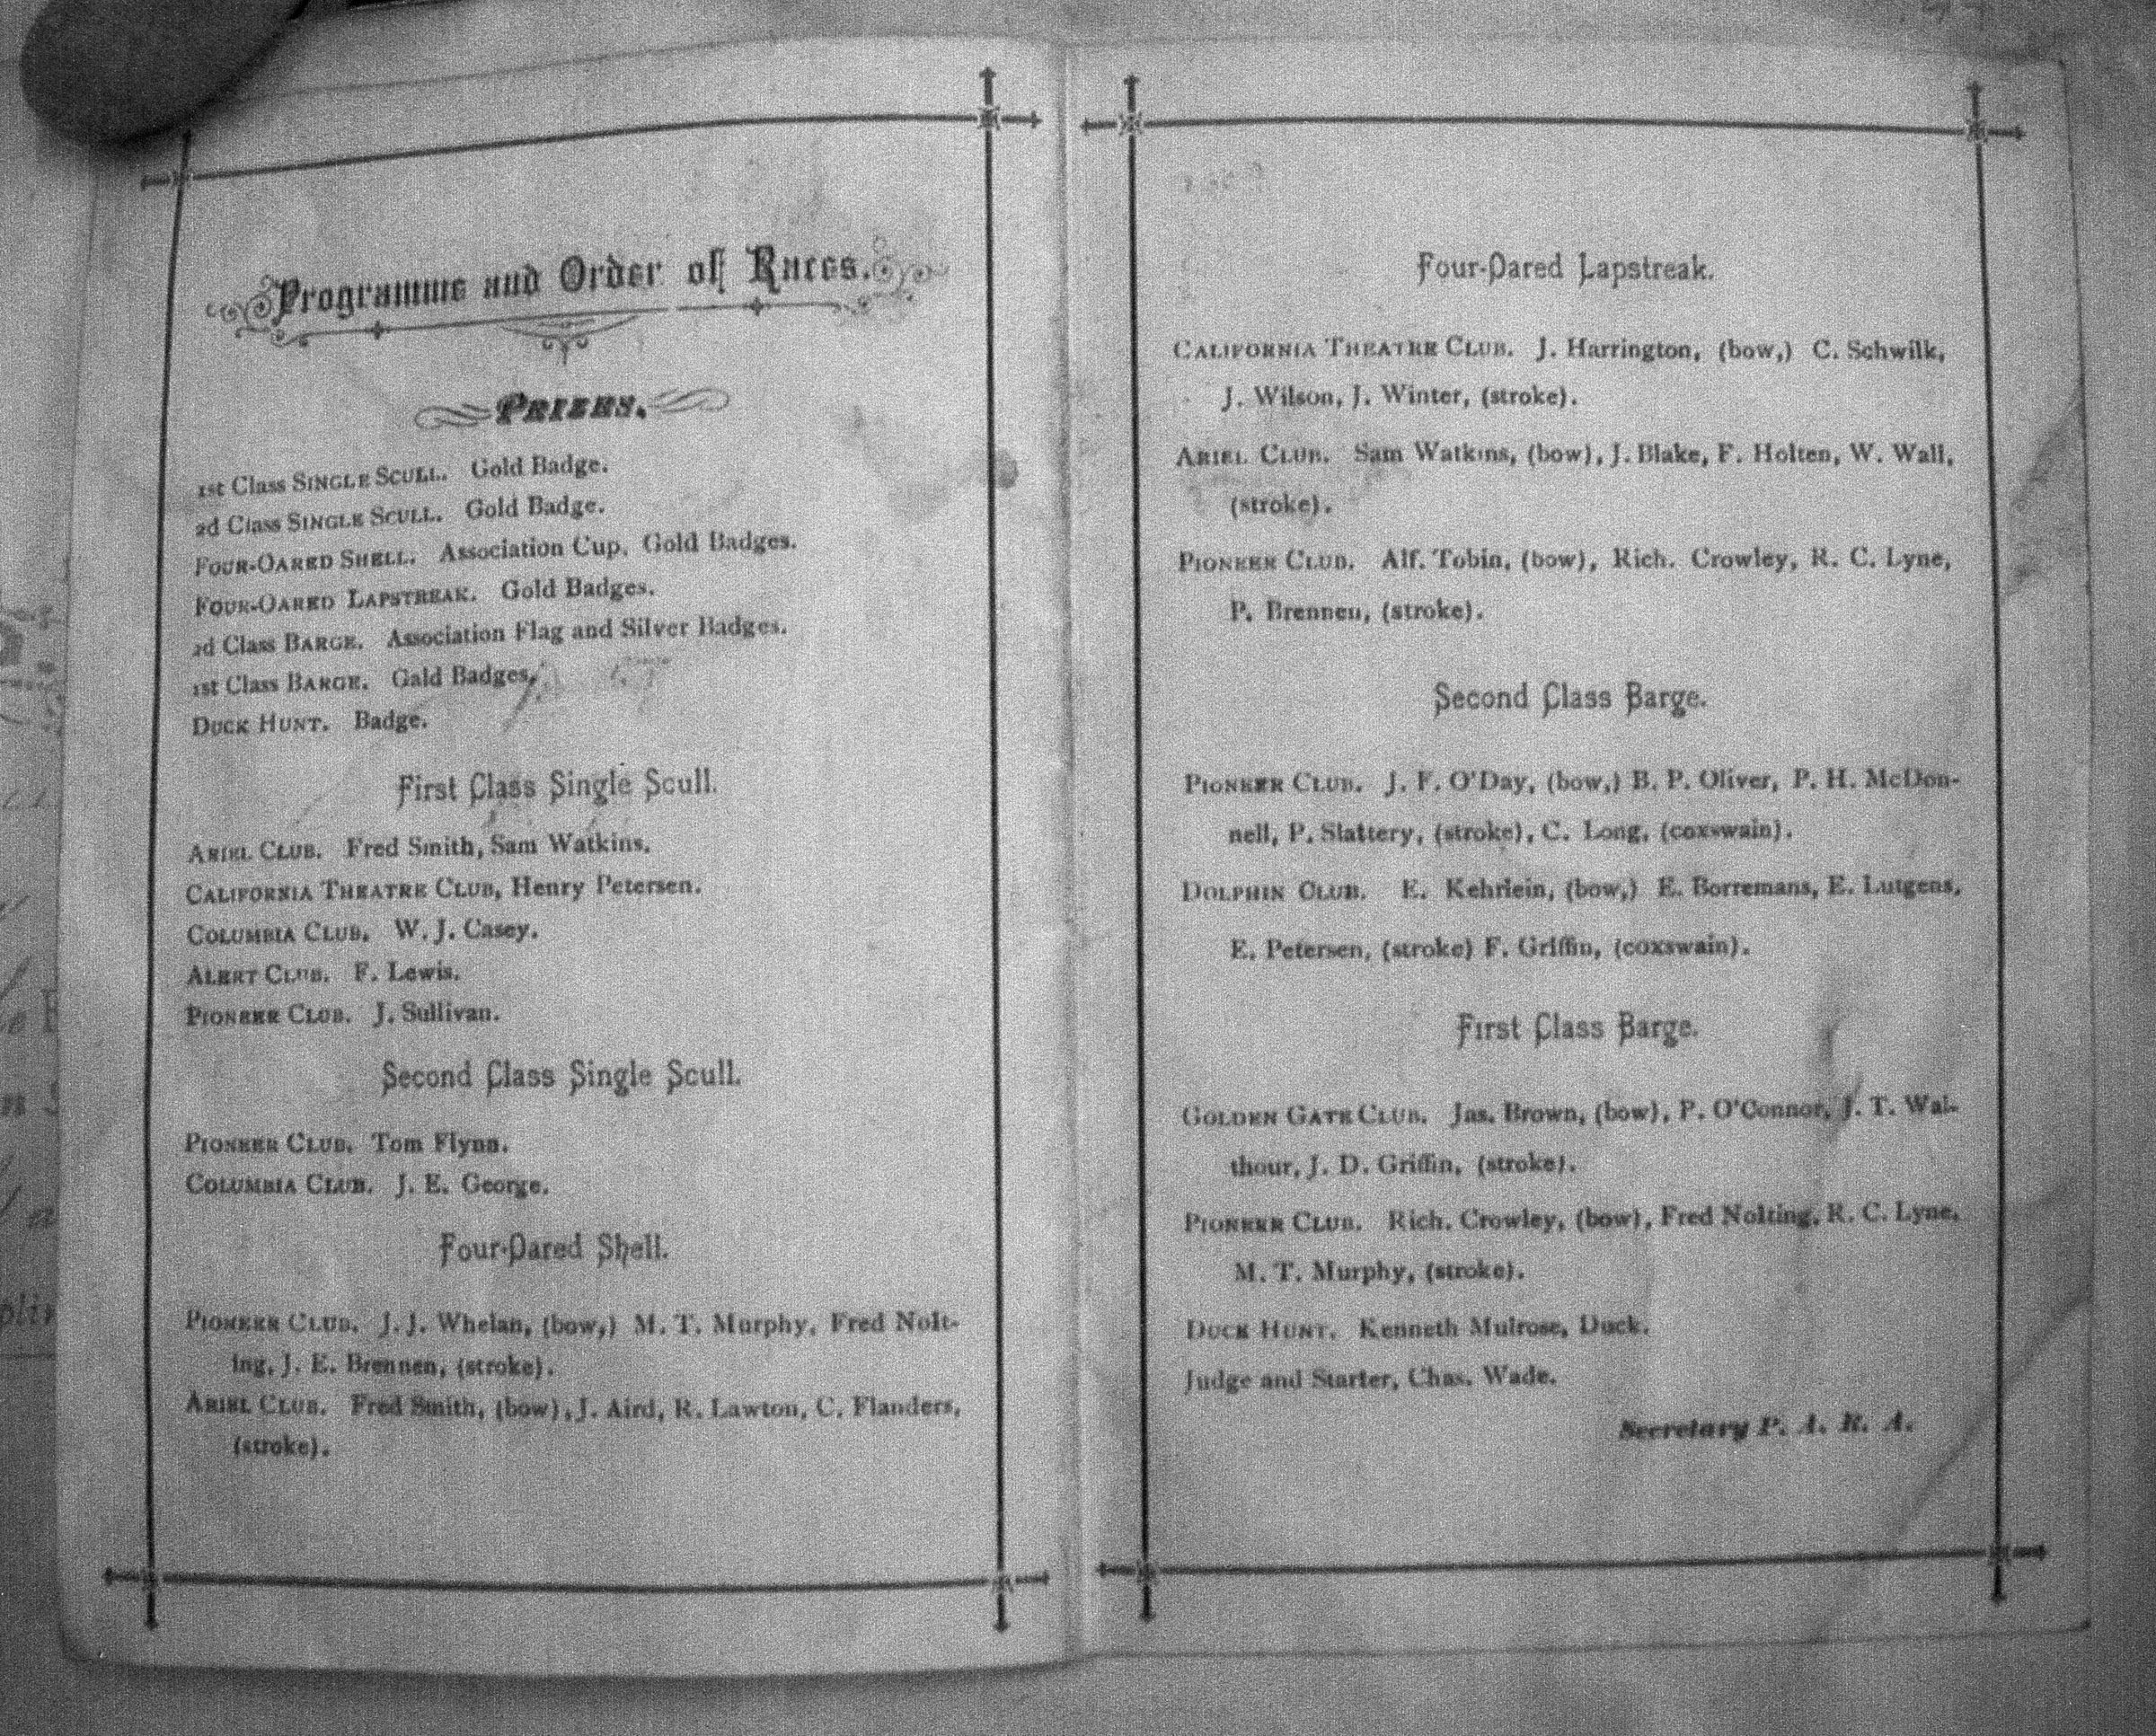 Programme and Order of Races.
PRIZES.
1st Class SINGLE SCULL. Gold Badge.
2d Class SINGLE SCULL. Gold Badge.
FOUR-OARED SHELL. Association Cup, Gold Badges.
FOUR-OARED LAPSTREAK. Gold Badges.
2d Class BARGE. Association Flag and Silver Badges.
1st Class BARGE. Gald Badges.
DUCK HUNT. Badge.
First Class Single Scull.
ARIEL CLUB. Fred Smith, Sam Watkins.
CALIFORNIA THEATRE CLUB, Henry Petersen.
COLUMBIA CLUB. W. J. Casey.
ALERT CLUB. F. Lewis.
PIONEER CLUB. J. Sullivan.
Second Class Single Scull.
PIONEER CLUB. Tom Flynn.
COLUMBIA CLUB. J. E. George.
Four-Oared Shell.
PIONEER CLUB. J. J. Whelan, (bow,) M. T. Murphy, Fred Nolt-
ing, J. E. Brennen, (stroke).
ARIEL CLUB. Fred Smith, (bow), J. Aird, R. Lawton, C. Flanders,
(stroke).
Four-Oared Lapstreak.
CALIFORNIA THEATRE CLUB. J. Harrington, (bow,) C. Schwilk,
J. Wilson, J. Winter, (stroke).
ARIEL CLUB. Sam Watkins, (bow), J. Blake, F. Holten, W. Wall,
(stroke).
PIONEER CLUB. Alf. Tobin, (bow), Rich. Crowley, R. C. Lyne,
P. Brennen, (stroke).
Second Class Barge.
PIONEER CLUB. J. F. O'Day, (bow,) B. P. Oliver, P. H. McDon-
nell, P. Slattery, (stroke), C. Long, (coxswain).
DOLPHIN CLUB. E. Kehrlein, (bow,) E. Borremans, E. Lutgens,
E. Petersen, (stroke) F. Griffin, (coxswain).
First Class Barge.
GOLDEN GATE CLUB. Jas. Brown, (bow), P. O'Connor, J. T. Wal-
thour, J. D. Griffin, (stroke).
PIONEER CLUB. Rich. Crowley, (bow), Fred Nolting, R. C. Lyne,
M. T. Murphy, (stroke).
DUCK HUNT. Kenneth Mulrose, Duck.
Judge and Starter, Chas. Wade.
Secretary P. A. R. A.